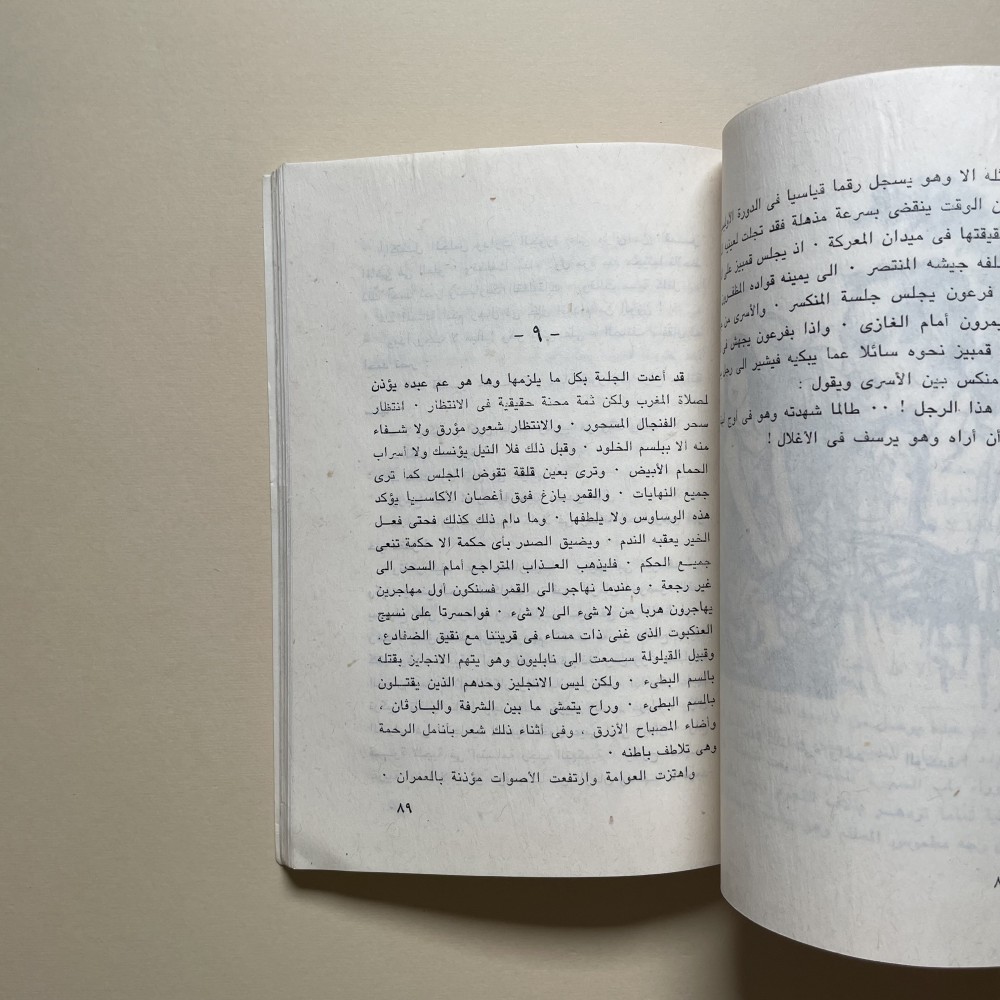 ثلة الا وهو يسجل رقما قياسيا فى الدورة
ن الوقت ينقضى بسرعة مذهلة فقد تجلت
قيقتها فى ميدان المعركة ٠ اذ يجلس قمبيز على
لفه جيشه المنتصر ٠ الى يمينه قواده
فرعون يجلس جلسة المنكسر ٠ والأسرى من
يمرون أمام الغازى ٠ واذا بفرعون يجهش فى
قمبيز نحوه سائلا عما يبكيه فيشير الى رجل
منكس بين الأسرى ويقول :
هذا الرجل ! ٠٠ طالما شهدته وهو فى أوج
أن أراه وهو يرسف فى الأغلال !
- ٩ -
قد أعدت الجلسة بكل ما يلزمها وها هو عم عبده يؤذن
لصلاة المغرب ولكن ثمة محنة حقيقية فى الانتظار ٠ انتظار
سحر الفنجال المسحور ٠ والانتظار شعور مؤرق ولا شفاء
منه الا ببلسم الخلود ٠ وقبل ذلك فلا النيل يؤنسك ولا أسراب
الحمام الأبيض ٠ وترى بعين قلقة تقوض المجلس كما ترى
جميع النهايات ٠ والقمر بازغ فوق أغصان الاكاسيا يؤكد
هذه الوساوس ولا يلطفها ٠ وما دام ذلك كذلك فحتى فعل
الخير يعقبه الندم ٠ ويضيق الصدر بأى حكمة الا حكمة تنعى
جميع الحكم ٠ فليذهب العذاب المتراجع أمام السحر الى
غير رجعة ٠ وعندما نهاجر الى القمر فسنكون أول مهاجرين
يهاجرون هربا من لا شىء الى لا شىء ٠ فواحسرتا على نسيج
العنكبوت الذى غنى ذات مساء فى قريتنا مع نقيق الضفادع.
وقبيل القيلولة سمعت الى نابليون وهو يتهم الانجليز بقتله
بالسم البطىء ٠ ولكن ليس الانجليز وحدهم الذين يقتلون
بالسم البطىء ٠ وراح يتمشى ما بين الشرفة والبارفان ،
وأضاء المصباح الأزرق ، وفى أثناء ذلك شعر بأنامل الرحمة
وهى تلاطف باطنه ٠
واهتزت العوامة وارتفعت الأصوات مؤذنة بالعمران ٠
٨٩